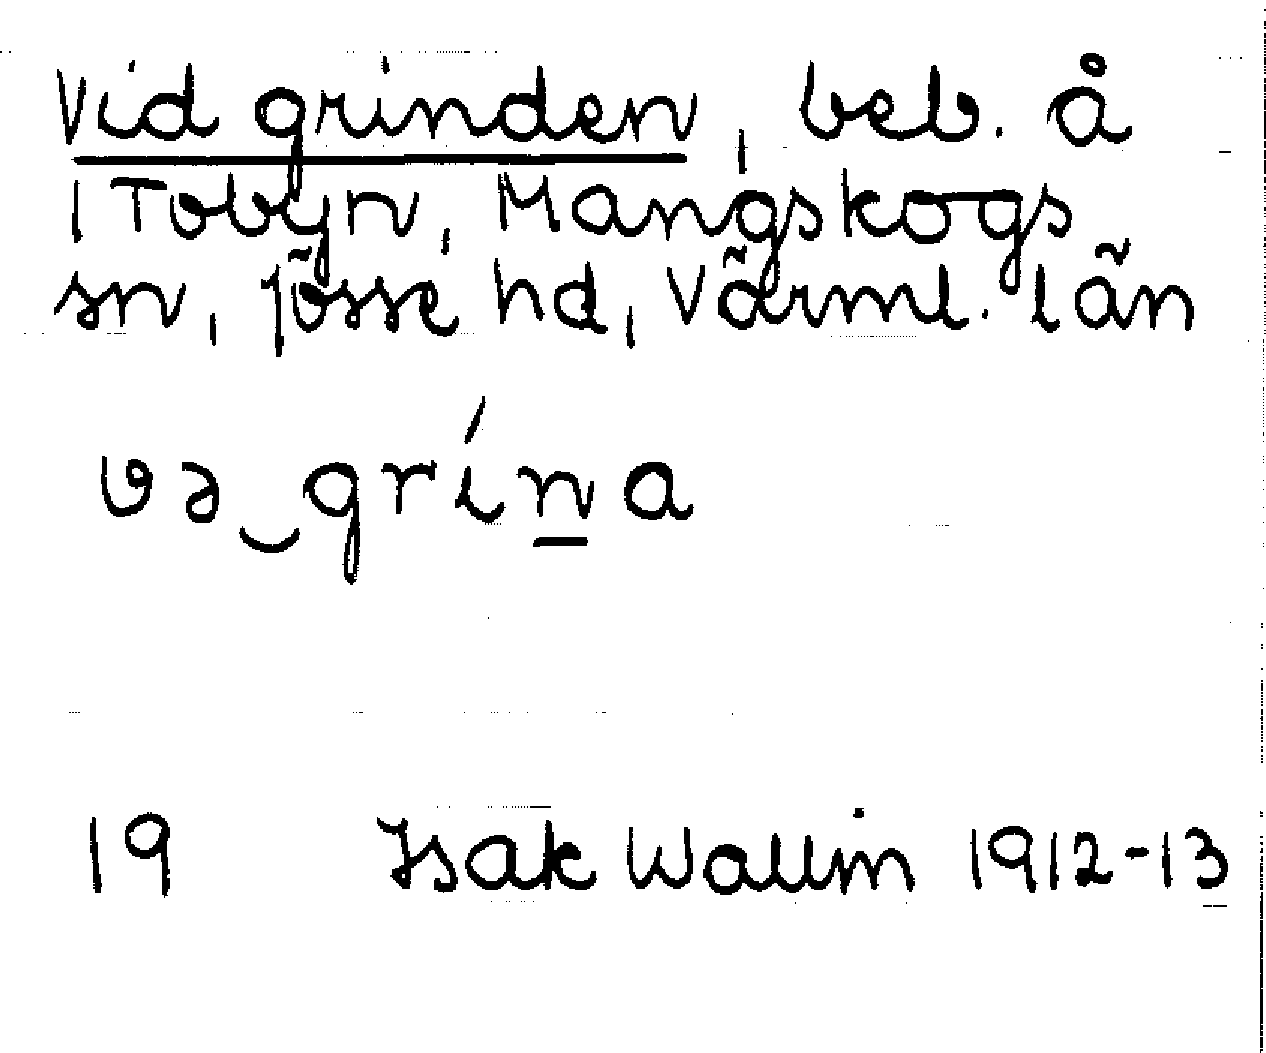 Vid grinden, beb. å
1 Tobyn, Mangskogs
sn, Jösse hd, Värml. län
və‿grína
19 Isak Wallin 1912-13